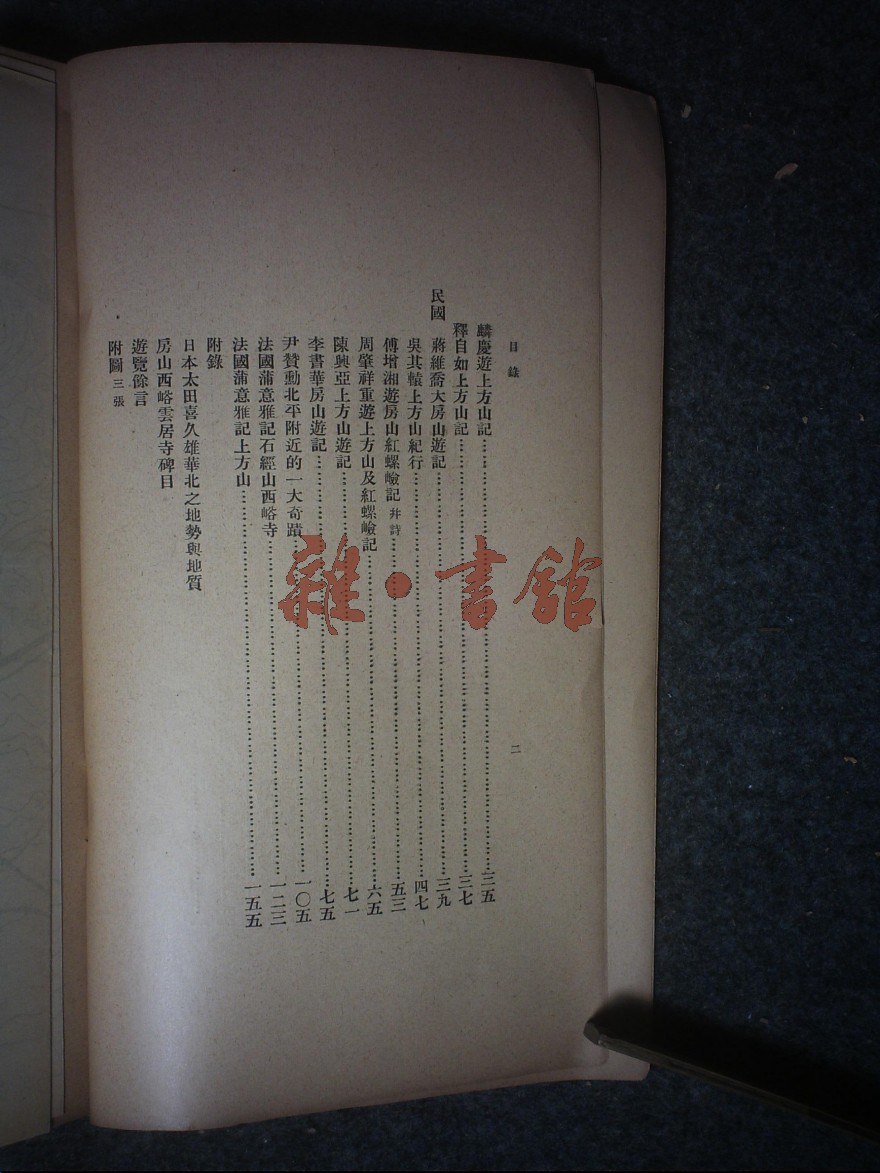 目錄
二
麟慶遊上方山記……三五
釋自如上方山記……三七
民國 蔣維喬大房山遊記……三九
吳其轅上方山紀行……四七
傅增湘遊房山紅螺嶮記 并詩……五三
周肇祥重遊上方山及紅螺嶮記……六五
陳興亞上方山遊記……七一
李書華房山遊記……七五
尹贊勳北平附近的一大奇蹟……一〇五
法國蒲意雅記石經山西峪寺……一二三
法國蒲意雅記上方山……一五五
附錄
日本太田喜久雄華北之地勢與地質
房山西峪雲居寺碑目
遊覽餘言
附圖三張
雜·書館